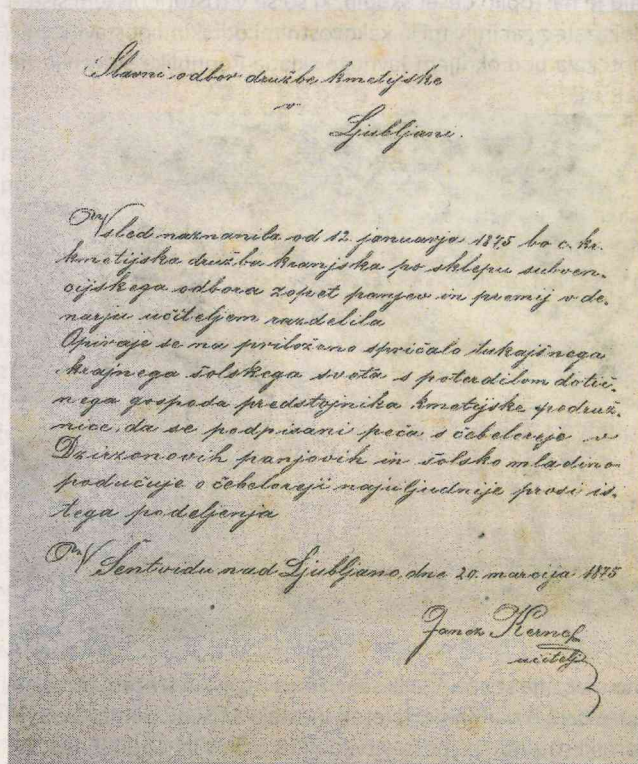 Slavni odbor družbe kmetijske
v
Ljubljani.
Vsled naznanila od 12. januarja 1875 bo c. kr.
kmetijska družba kranjska po sklepu subven-
cijskega odbora zopet panjev in premij v de-
narju učiteljem razdelila
Opiraje se na priloženo spričalo tukajšnega
krajnega šolskega sveta s poterdilom dotič-
nega gospoda predstojnika kmetijske podruž-
nice, da se podpisani peča s čebelorejo v
Dzirzonovih panjovih in šolsko mladino
podučuje o čebeloreji najuljudnije prosi is-
tega podeljenja
V Šentvidu nad Ljubljano, dne 20. marcija 1875
Janez Kernel
učitelj